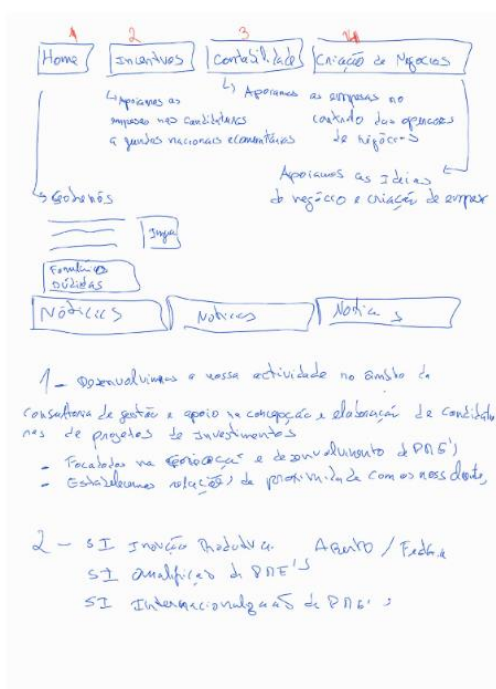 1 2 3 4
Home Incentivos Contabilidade Criação de Negocios
↳ Apoiamos as
empresas nas candidaturas
a fundos nacionais e comunitários
↳ Apoiamos as empresas no
controlo das operações
de negócios
Apoiamos as Ideias
de negócio e criação de empresa
↳ Sobre nós
Formulários
Dúvidas
Noticias Noticias Noticias
1 - Desenvolvimos a nossa actividade no âmbito da
consultoria de gestão e apoio na concepção e elaboração de candidatu
ras de projetos de Investimentos
- Focalizados na e desenvolvimento de PME's
- Estabelecemos relações de proximidade com os nossos clientes,
2 - SI Inovação Produtiva Aberto /
SI Qualificação de PME'S
SI Internacionalização de PME's